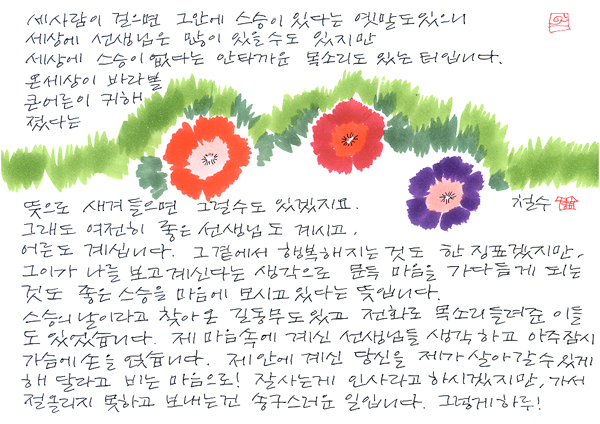 세사람이 걸으면 그안에 스승이 있다는 옛말도있으니
세상에 선생님은 많이 있을수도 있지만
세상에 스승이 없다는 안타까운 목소리도 있는 터입니다.
온세상이 바라볼
큰어른이 귀해
졌다는
뜻으로 새겨 들으면 그럴수도 있겠지요.
철수
그래도 여전히 좋은 선생님도 계시고,
어른도 계십니다. 그곁에서 행복해지는것도 한 징표겠지만,
그이가 나를 보고계신다는 생각으로 문득 마음을 가다듬게 되는
것도 좋은 스승을 마음에 모시고있다는 뜻입니다.
스승의날이라고 찾아온 길동무도있고 전화로 목소리들려준 이들
도 있었습니다. 제 마음속에 계신 선생님들 생각하고 아주잠시
가슴에 손을 얹습니다. 제안에 계신 당신을 제가 살아갈수있게
해 달라고 비는 마음으로! 잘사는게 인사라고 하시겠지만, 가서
절올리지 못하고 보내는건 송구스러운 일입니다. 그렇게 하루!